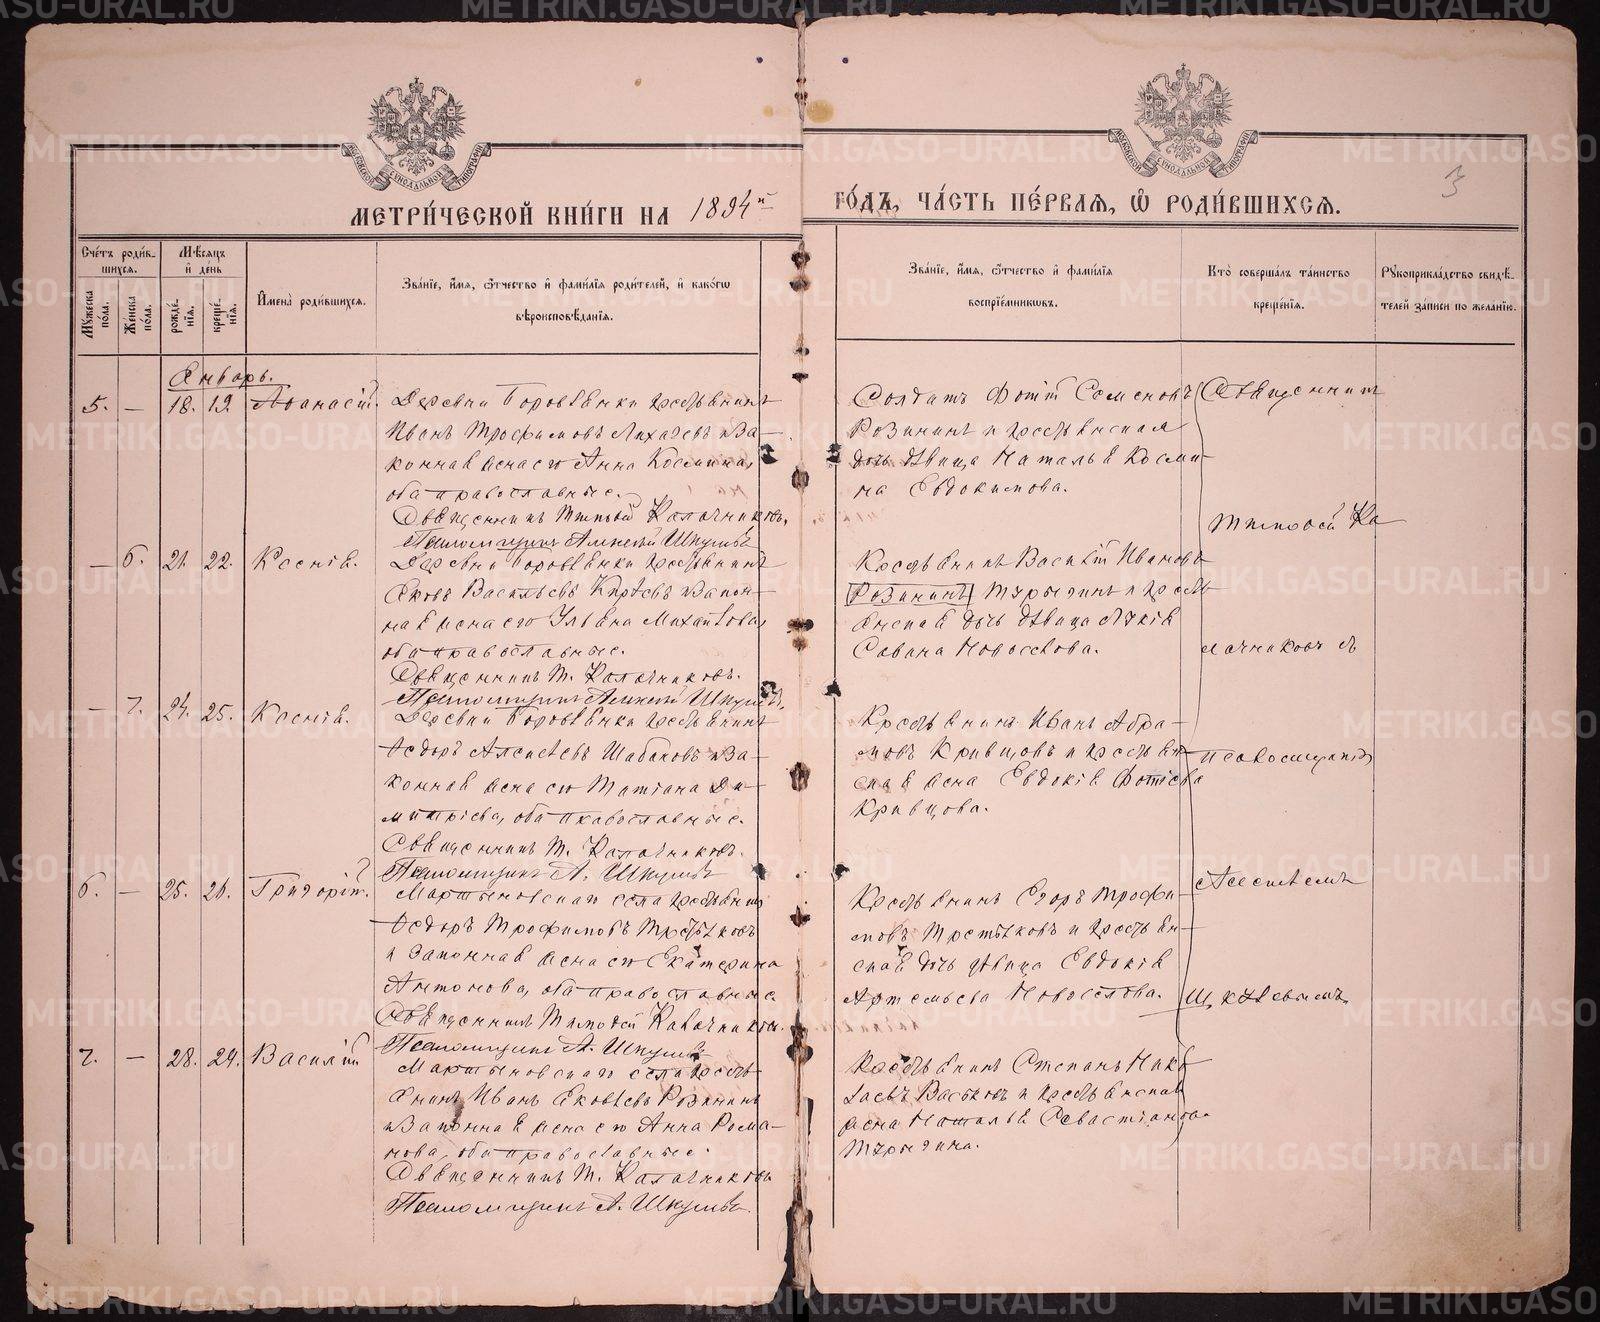 МЕТРИ́ЧЕСКОЙ КНИ́ГИ НА 1894й ГО́ДЪ, ЧА́СТЬ ПЕ́РВАЯ, Ѡ РОДИ́ВШИХСЯ.
3
Сче́тъ роди́в-
шихся.
Мꙋ́жеска
по́ла.
Же́нска
по́ла.
Мѣ́сяцъ
и де́нь
рожде́-
нїя.
креще́-
нїя.
Имена̀ роди́вшихся.
Зва́нїе, и́мя, ѻ́тчество и фами́лїя роди́телей, и како́гѡ
вѣроисповѣ́данїя.
Зва́нїе, и́мя, ѻ́тчество и фами́лїя
воспрїе́мникѡвъ.
Кто̀ соверша́лъ та́инство
креще́нїя.
Рꙋкоприкла́дство свидѣ́-
телей за́писи по жела́нїю.
Январь.
5. — 18. 19. Аѳанасій.
Деревни Боровлянки крестьянинъ
Иванъ Трофимовъ Лихачевъ и за-
конная жена его Анна Космина,
оба православные.
Священникъ Тимоѳей Калачниковъ.
Псаломщикъ Алексей
Солдатъ Фотій Семеновъ
Розининъ и крестьянская
дочь дѣвица Наталья Косми-
на Евдокимова.
Священникъ
Тимоѳей Ка
— 6. 21. 22. Ксенія.
Деревни Боровлянки крестьянинъ
Яковъ Васильевъ Кирѣевъ и закон-
ная жена его Ульяна Михайлова,
оба православные.
Священникъ Т. Калачниковъ.
Псаломщикъ Алексей
Крестьянинъ Василій Ивановъ
Розининъ Турыгинъ и кресть-
янская дочь дѣвица Лукія
Савина Новоселова.
лачниковъ съ
— 7. 24. 25. Ксенія.
Деревни Боровлянки крестьянинъ
Ѳедоръ Алексѣевъ Шабаковъ и за-
конная жена его Татіана Ди-
митріева, оба православные.
Священникъ Т. Калачниковъ.
Псаломщикъ А.
Крестьянинъ Иванъ Абра-
мовъ Кривцовъ и крестьян-
ская жена Евдокія Фотіева
Кривцова.
псаломщикомъ
6. — 25. 26. Григорій.
Мартыновскаго села крестьянинъ
Ѳедоръ Трофимовъ Третьяковъ
и законная жена его Екатерина
Антонова, оба православные.
Священникъ Тимоѳей Калачниковъ.
Псаломщикъ А.
Крестьянинъ Егоръ Трофи-
мовъ Третьяковъ и крестьян-
ская дочь дѣвица Евдокія
Артемьева Новоселова.
Алексѣемъ
7. — 28. 29. Василій
Мартыновскаго села кресть-
янинъ Иванъ Яковлевъ Розининъ
и законная жена его Анна Рома-
нова, оба православные.
Священникъ Т. Калачниковъ
Псаломщикъ А.
Крестьянинъ Степанъ Нико-
лаевъ Васьковъ и крестьянская
жена Наталья Севастіанова
Турыгина.